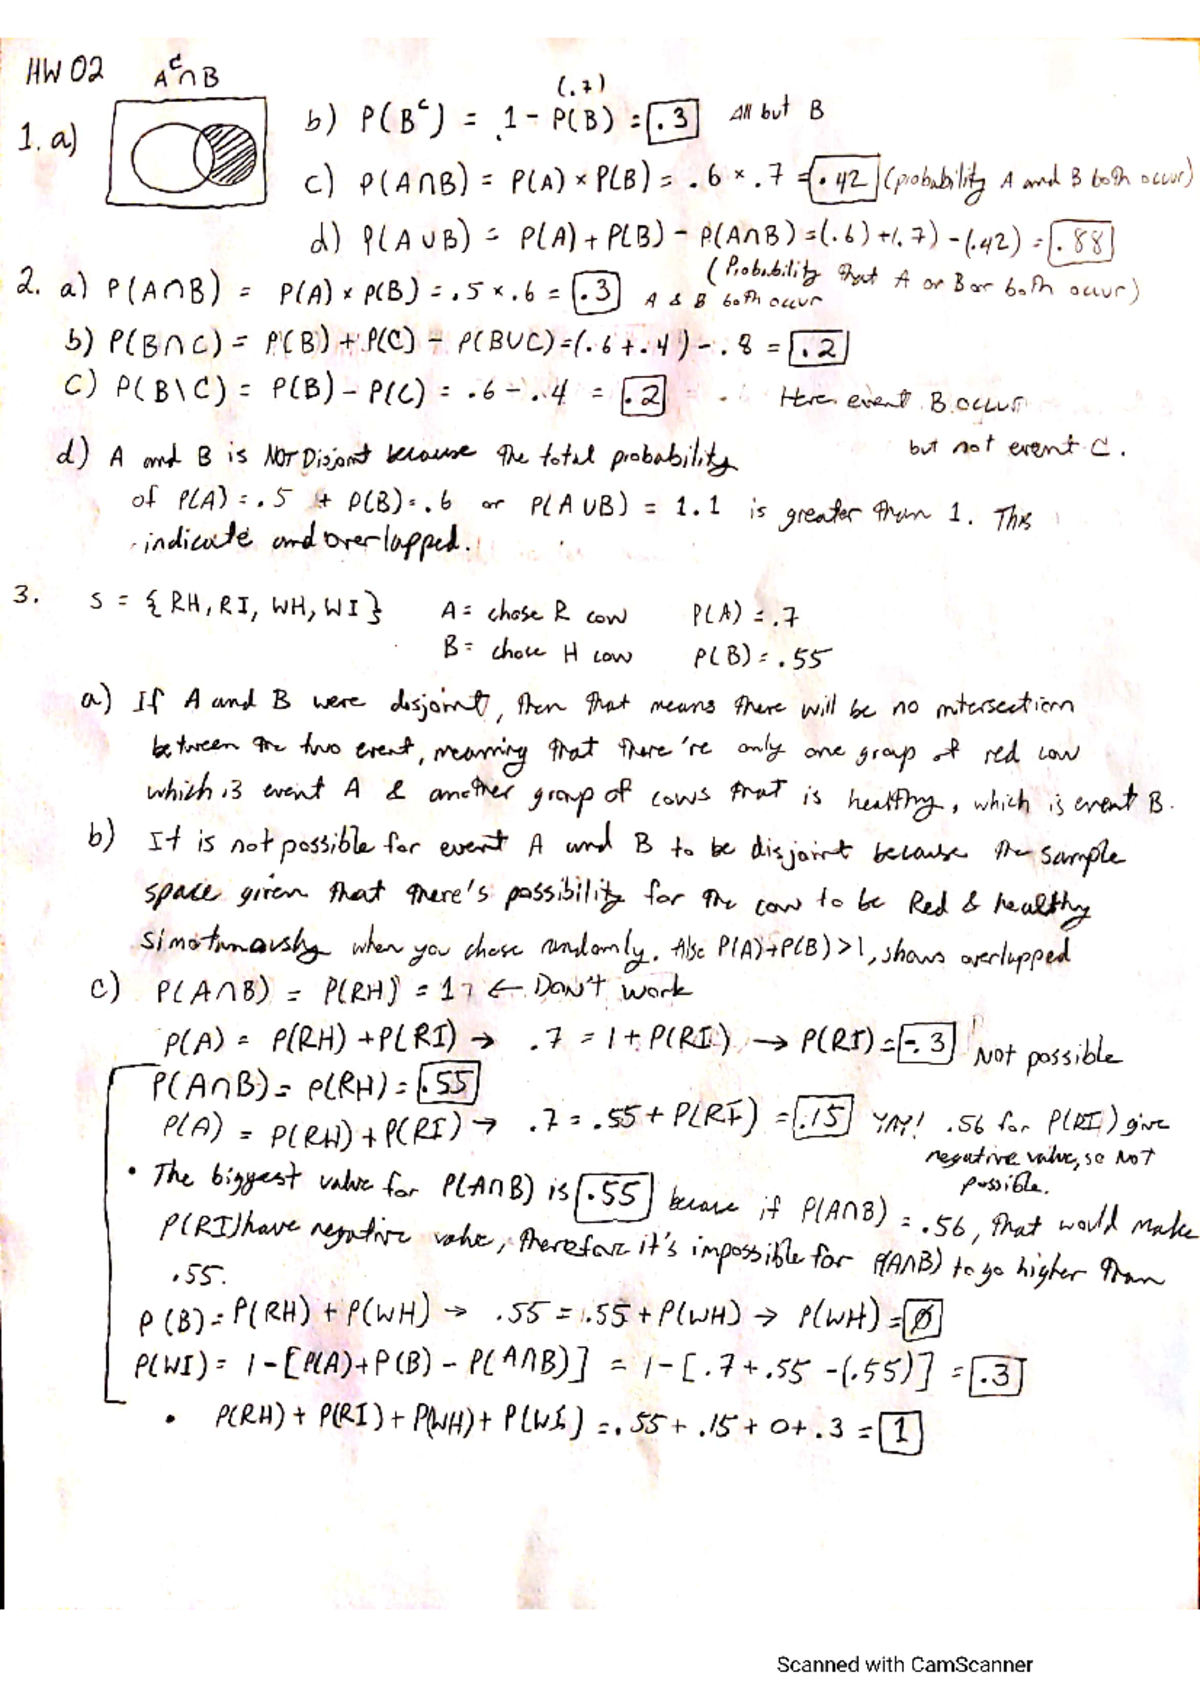 HW 02
Aᶜ∩B
1. a)
(.7)
b) P(Bᶜ) = 1 - P(B) = .3 All but B
c) P(A∩B) = P(A) × P(B) = .6 × .7 = .42 (probability A and B both occur)
d) P(A∪B) = P(A) + P(B) - P(A∩B) = (.6) + (.7) - (.42) = .88
(Probability that A or B or both occur)
2. a) P(A∩B) = P(A) × P(B) = .5 × .6 = .3 A & B both occur
b) P(B∩C) = P(B) + P(C) - P(B∪C) = (.6 + .4) - .8 = .2
c) P(B\C) = P(B) - P(C) = .6 - .4 = .2 Here event B occur
but not event C.
d) A and B is NOT Disjoint because the total probability
of P(A) = .5 + P(B) = .6 or P(A∪B) = 1.1 is greater than 1. This
indicate and overlapped.
3. S = {RH, RI, WH, WI} A = chose R cow P(A) = .7
B = chose H cow P(B) = .55
a) If A and B were disjoint, then that means there will be no intersection
between the two event, meaning that there're only one group of red cow
which is event A & another group of cows that is healthy, which is event B.
b) It is not possible for event A and B to be disjoint because the sample
space given that there's possibility for the cow to be Red & healthy
simotunaously when you chose randomly. Also P(A)+P(B)>1, shows overlapped
c) P(A∩B) = P(RH) = 1? ← Don't work
P(A) = P(RH) + P(RI) → .7 = 1 + P(RI) → P(RI) = -.3 Not possible
P(A∩B) = P(RH) = .55
P(A) = P(RH) + P(RI) → .7 = .55 + P(RI) = .15 YAY! .56 for P(RI) give
negative value, so NOT
possible.
• The biggest value for P(A∩B) is .55 because if P(A∩B) = .56, that would make
P(RI) have negative value, therefore it's impossible for P(A∩B) to go higher than
.55.
P(B) = P(RH) + P(WH) → .55 = .55 + P(WH) → P(WH) = Ø
P(WI) = 1 - [P(A) + P(B) - P(A∩B)] = 1 - [.7 + .55 - (.55)] = .3
• P(RH) + P(RI) + P(WH) + P(WI) = .55 + .15 + 0 + .3 = 1
Scanned with CamScanner